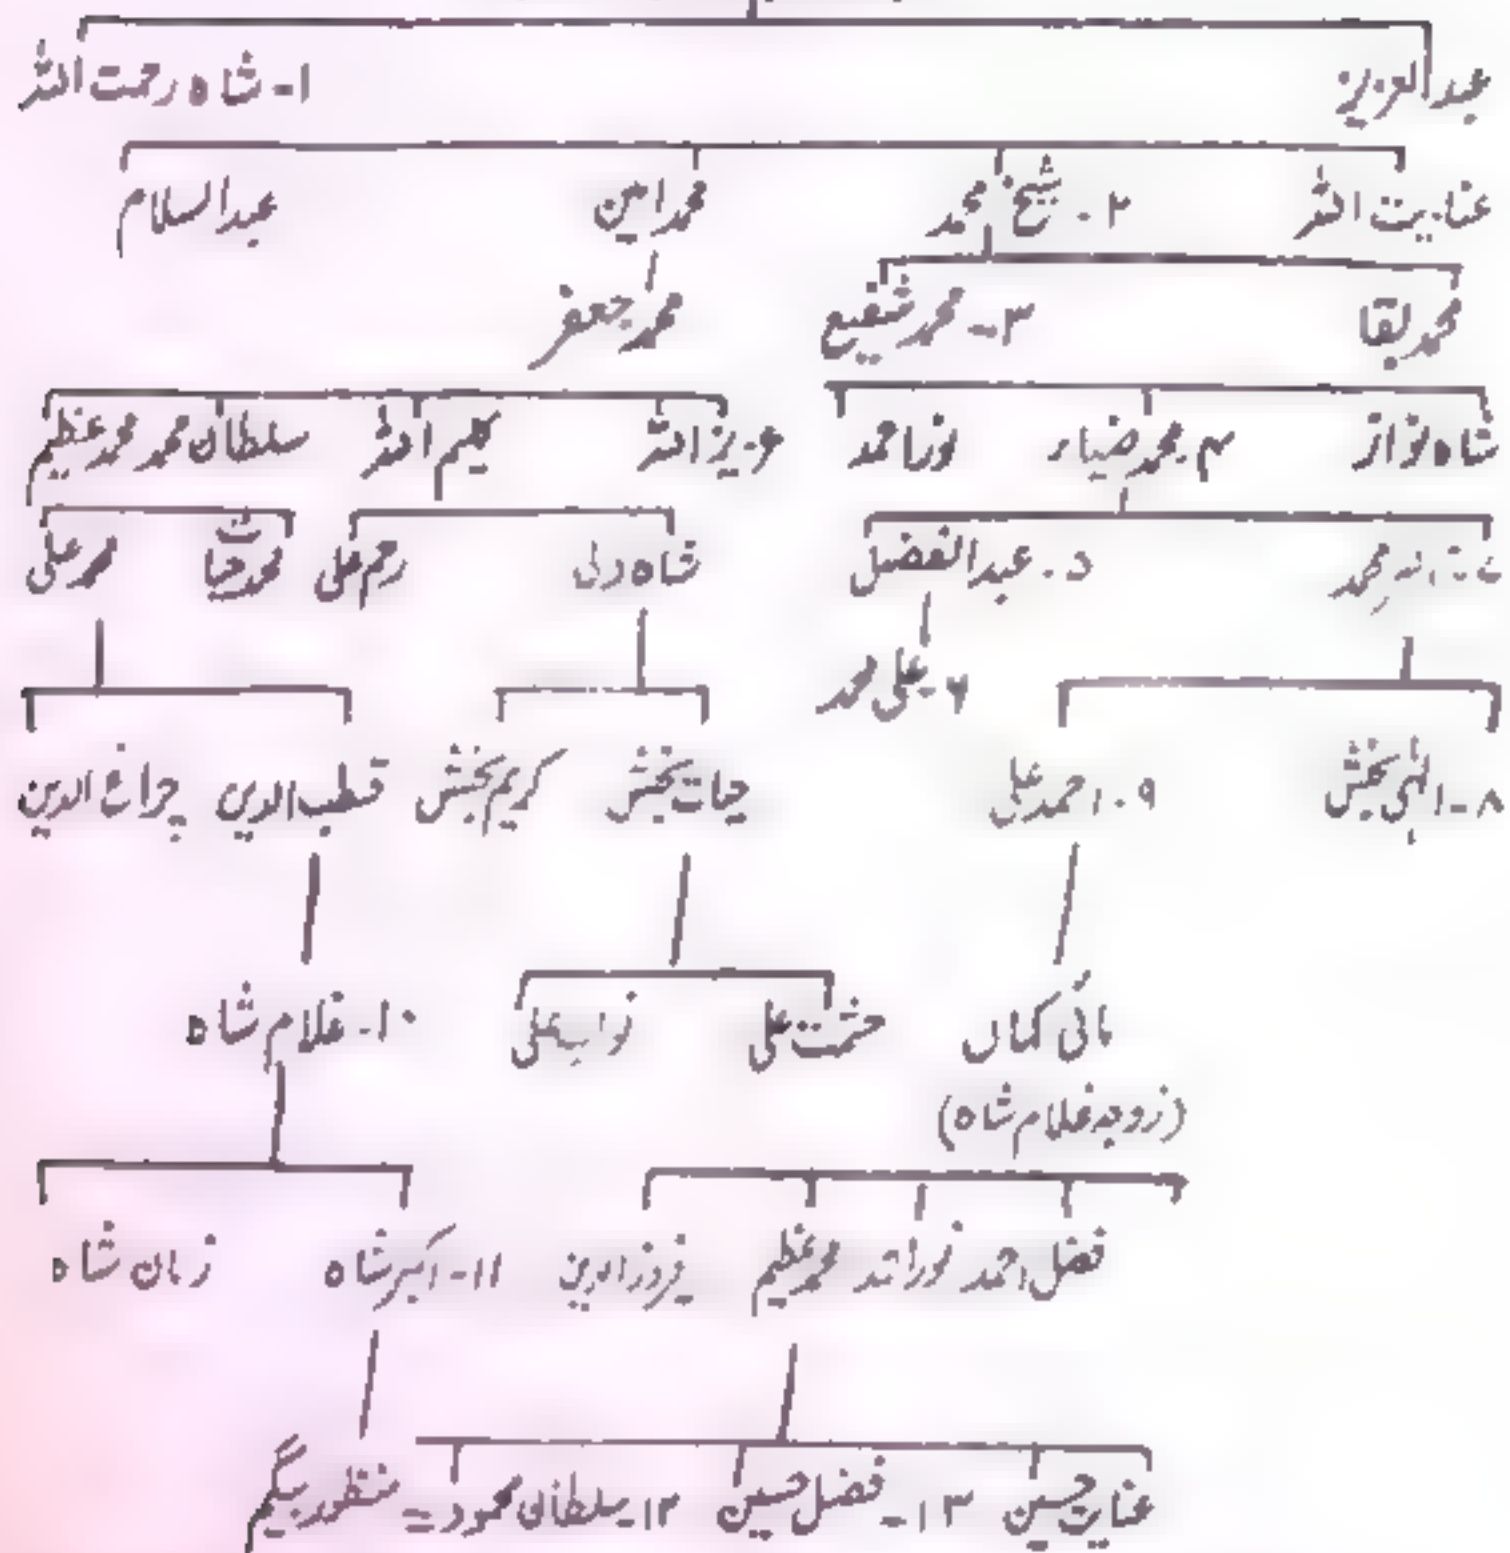 عبدالعزیز ۱- شاہ رحمت اللہ
عنایت اللہ ۲- شیخ محمد محمد امین عبدالسلام
محمد بقا ۳- محمد شفیع محمد جعفر
شاہ نواز ۴- محمد ضیاء نور احمد عزیز اللہ کلیم اللہ سلطان محمد محمد عظیم
محمد ۵- عبدالفضل شاہ ولی رحم علی محمد حیات محمد علی
۶- علی محمد
۸- الٰہی بخش ۹- احمد علی حیات بخش کریم بخش قطب الدین چراغ الدین
مائی کماں حشمت علی نواب علی ۱۰- غلام شاہ
(زوجہ غلام شاہ)
فضل احمد نور احمد محمد عظیم فروز الدین ۱۱- اکبر شاہ زمان شاہ
عنایت حسین ۱۳- فضل حسین ۱۲- سلطان محمود = منظور بیگم